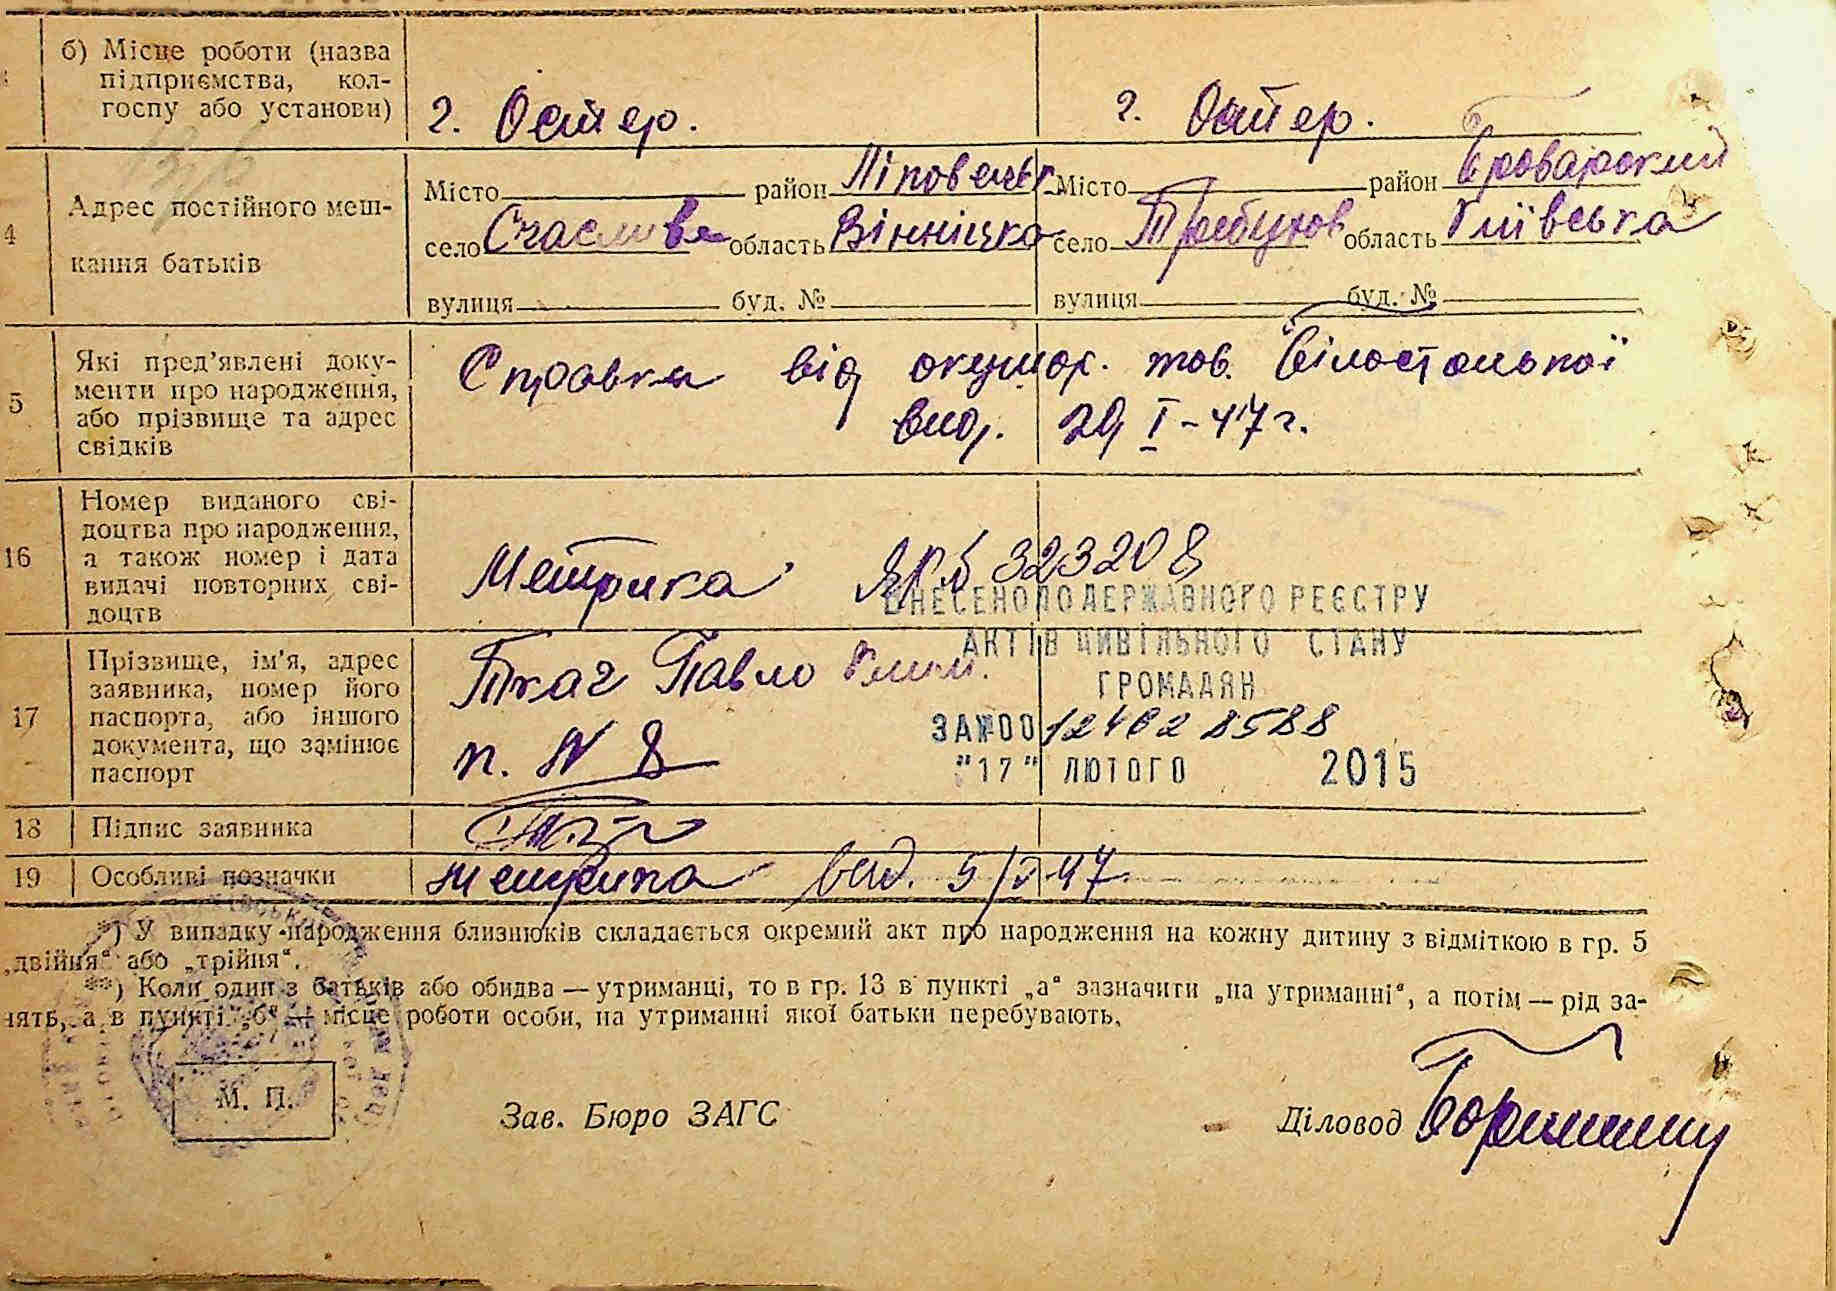 б) Місце роботи (назва
підприємства, кол-
госпу або установи)
г. Остер. г. Остер.
4
Адрес постійного меш-
кання батьків
Місто район Ліповецьк Місто район Броварский
село Счасливе область Вінніцко село Требухов область Київська
вулиця буд. № вулиця буд. №
5
Які пред'явлені доку-
менти про народження,
або прізвище та адрес
свідків
Справка від акушор. тов. Білостоцької
вид. 29 I-47 г.
16
Номер виданого сві-
доцтва про народження,
а також номер і дата
видачі повторних сві-
доцтв
Метрика ЯРБ 323208
ВНЕСЕНО ДО ДЕРЖАВНОГО РЕЄСТРУ
АКТІВ ЦИВІЛЬНОГО СТАНУ
ГРОМАДЯН
17
Прізвище, ім'я, адрес
заявника, номер його
паспорта, або іншого
документа, що замінює
паспорт
Ткач Павло Клим.
п. N 8
ЗА №00 12402 8588
"17" ЛЮТОГО 2015
18 Підпис заявника
19 Особливі позначки метрика вид. 5/V-47
*) У випадку народження близнюків складається окремий акт про народження на кожну дитину з відміткою в гр. 5
„двійня“ або „трійня“.
**) Коли один з батьків або обидва — утриманці, то в гр. 13 в пункті „а“ зазначити „на утриманні“, а потім — рід за-
нять, а в пункті „б“ — місце роботи особи, на утриманні якої батьки перебувають.
М. П.
Зав. Бюро ЗАГС Діловод